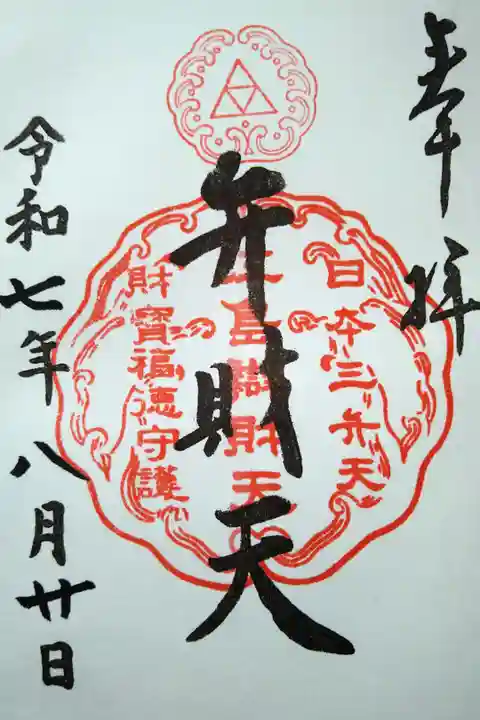 奉拝
日本三弁天
江島辨財天
財寶福徳守護
弁財天
令和七年八月廿日